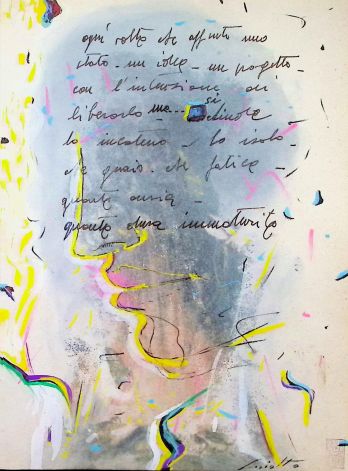 ogni volta che affronto uno
stato - un idea - un progetto -
con l'intenzione di
liberarlo ma - si
lo incateno - lo isolo -
che fatica -
quanta ansia -
quanta immaturità